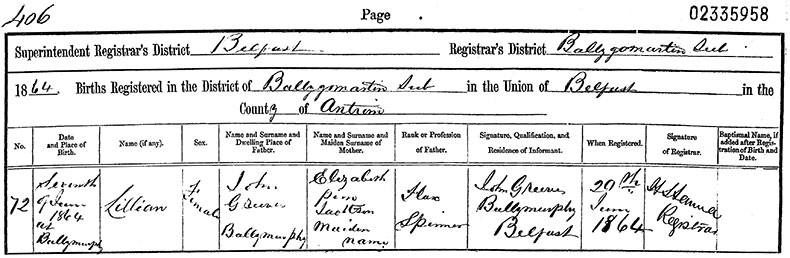 406 Page 02335958
Superintendent Registrar's District Belfast Registrar's District Ballygomartin Sub
1864. Births Registered in the District of Ballygomartin Sub in the Union of Belfast in the
County of Antrim
No. Date and Place of Birth. Name (if any). Sex. Name and Surname and Dwelling Place of Father. Name and Surname and Maiden Surname of Mother. Rank or Profession of Father. Signature, Qualification, and Residence of Informant. When Registered. Signature of Registrar. Baptismal Name, if added after Registration of Birth and Date.
72 Seventh of June 1864 at Ballymurphy Lillian Female John Greeves Ballymurphy Elizabeth Jackson Maiden name Flax Spinner John Greeves Ballymurphy Belfast 20th June 1864 Registrar